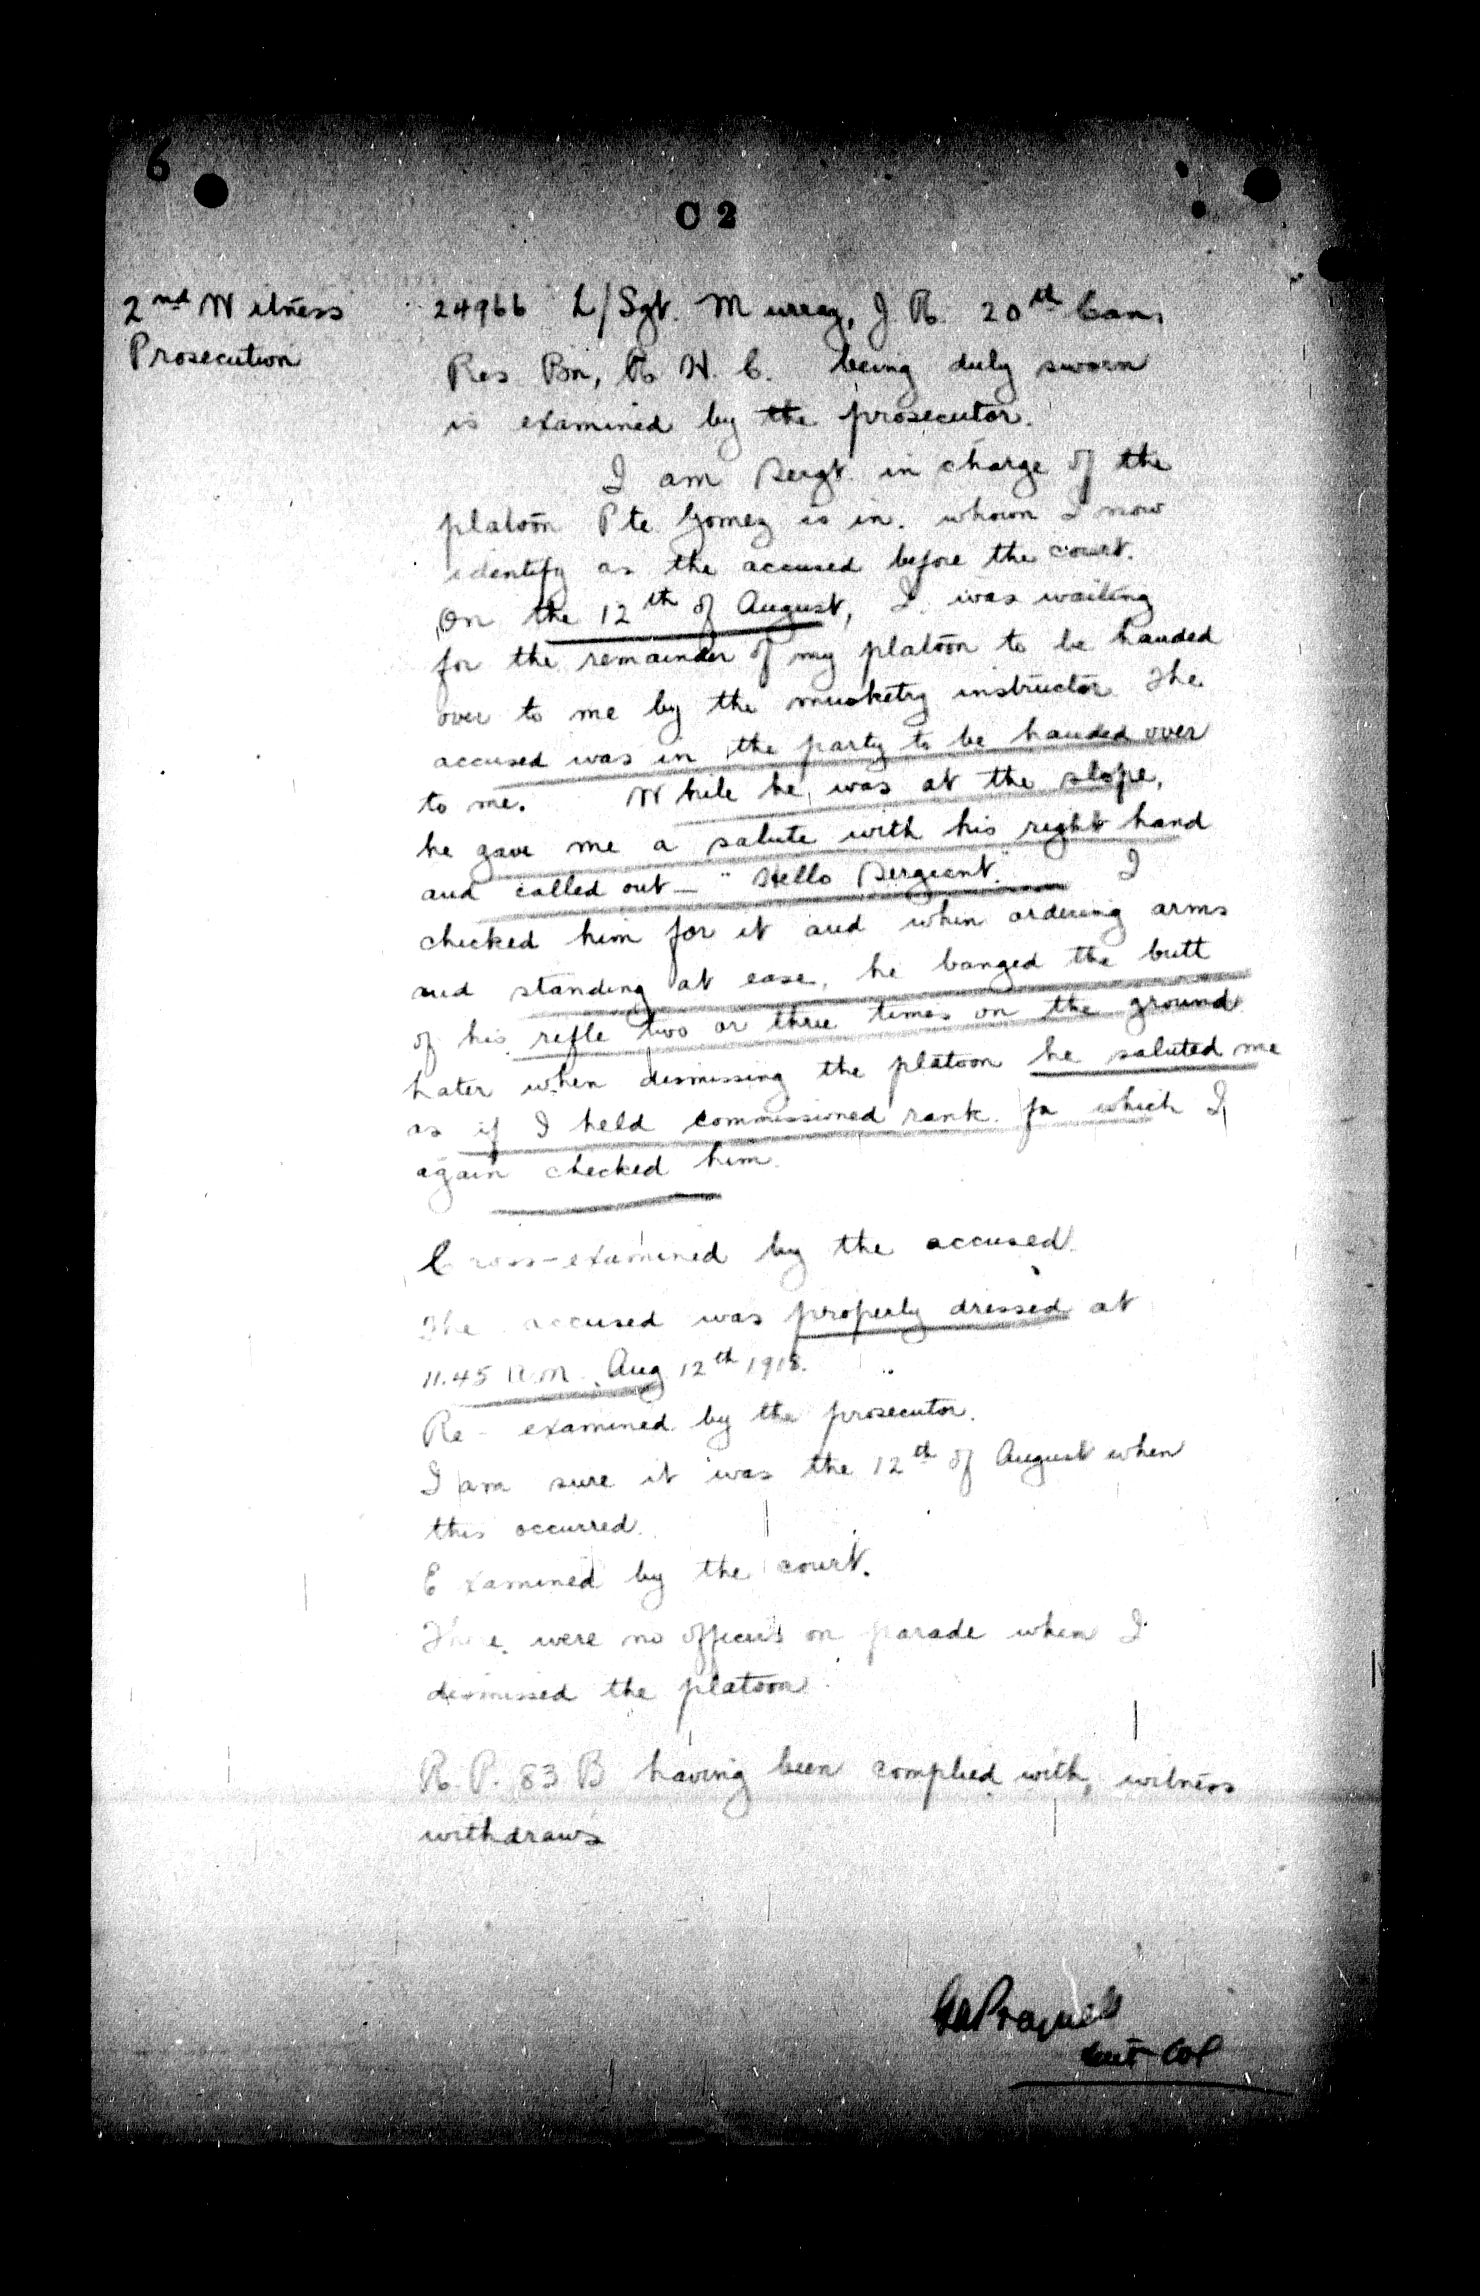 6
C 2
2nd Witness
Prosecution
24966 L/Sgt. Murray, J. R. 20th Can.
Res. Bn, R. H. C. being duly sworn
is examined by the prosecutor.
I am Sergt. in charge of the
platoon Pte Gomez is in. whom I now
identify as the accused before the court.
On the 12th of August, I was waiting
for the remainder of my platoon to be handed
over to me by the musketry instructor. The
accused was in the party to be handed over
to me. While he was at the slope,
he gave me a salute with his right hand
and called out — "Hello Sergeant." I
checked him for it and when ordering arms
and standing at ease, he banged the butt
of his refle two or three times on the ground
Later when dismissing the platoon he saluted me
as if I held commissioned rank. for which I
again checked him.
Cross-examined by the accused.
The accused was properly dressed at
11.45 A.M. Aug 12th 1918.
Re-examined by the prosecutor.
I am sure it was the 12th of August when
this occurred.
Examined by the court.
There were no officers on parade when I
dismissed the platoon.
R. P. 83 B having been complied with, witness
withdraws
Lieut-Col